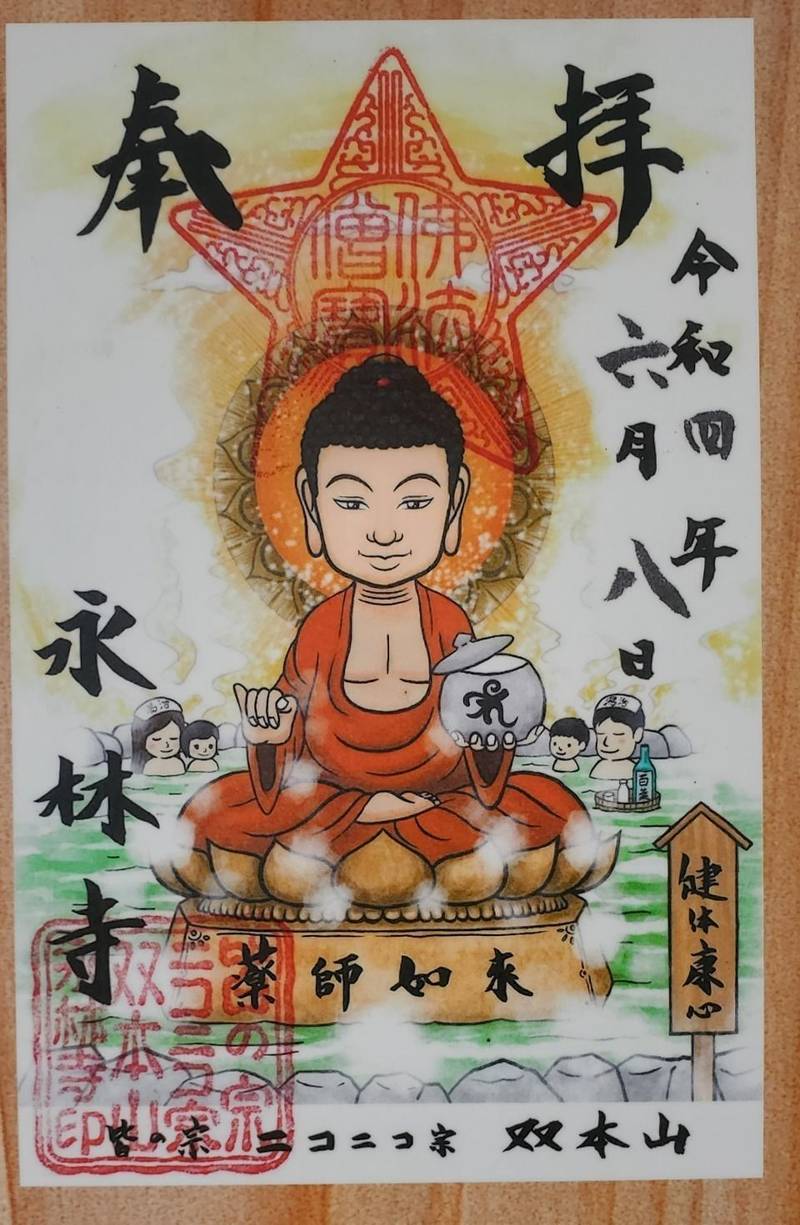 奉拝
令和四年
六月八日
佛法
僧寶
永林寺
湯治
湯治
百薬
健体康心
薬師如来
皆の宗
ニコニコ宗
双本山
永林寺印
皆の宗 ニコニコ宗 双本山